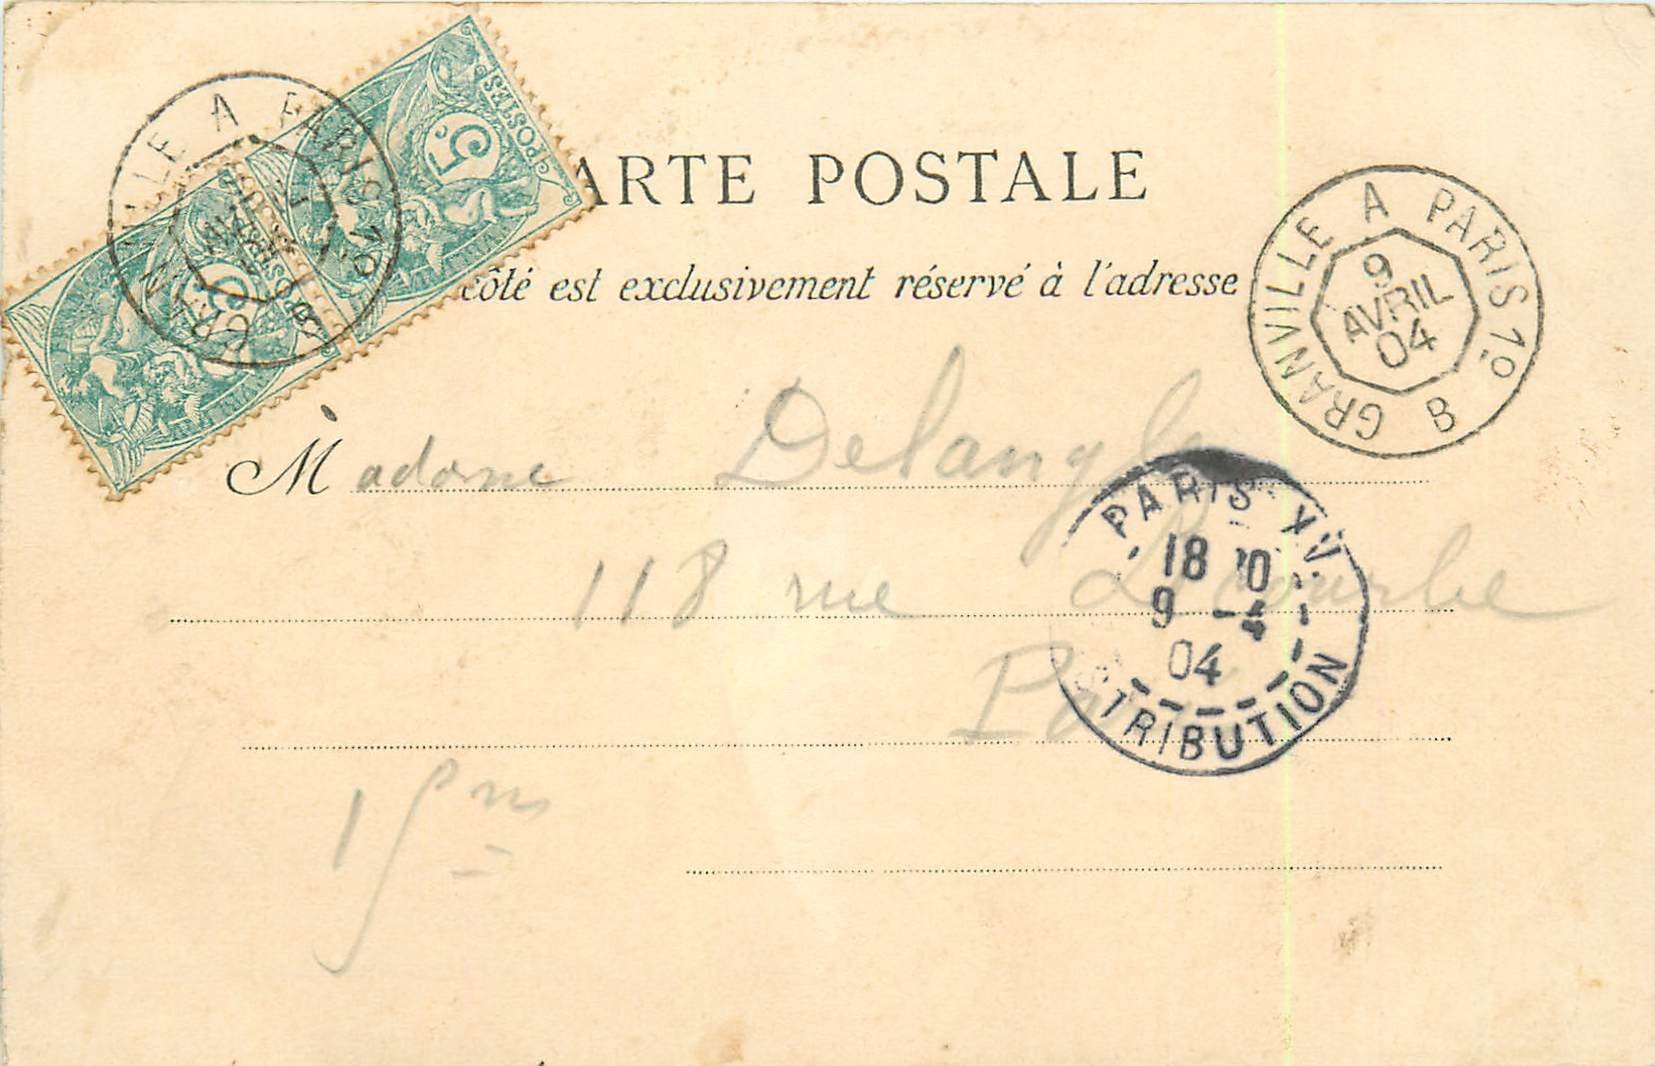 GRANVILLE A PARIS 1º
B
POSTES
5
POSTES
5
ARTE POSTALE
côté est exclusivement réservé à l'adresse
GRANVILLE A PARIS 1º
9
AVRIL
04
B
Madame Delangle
118 rue Lecourbe
Paris
15 me
PARIS XV
18 10
9 -4
04
TRIBUTION